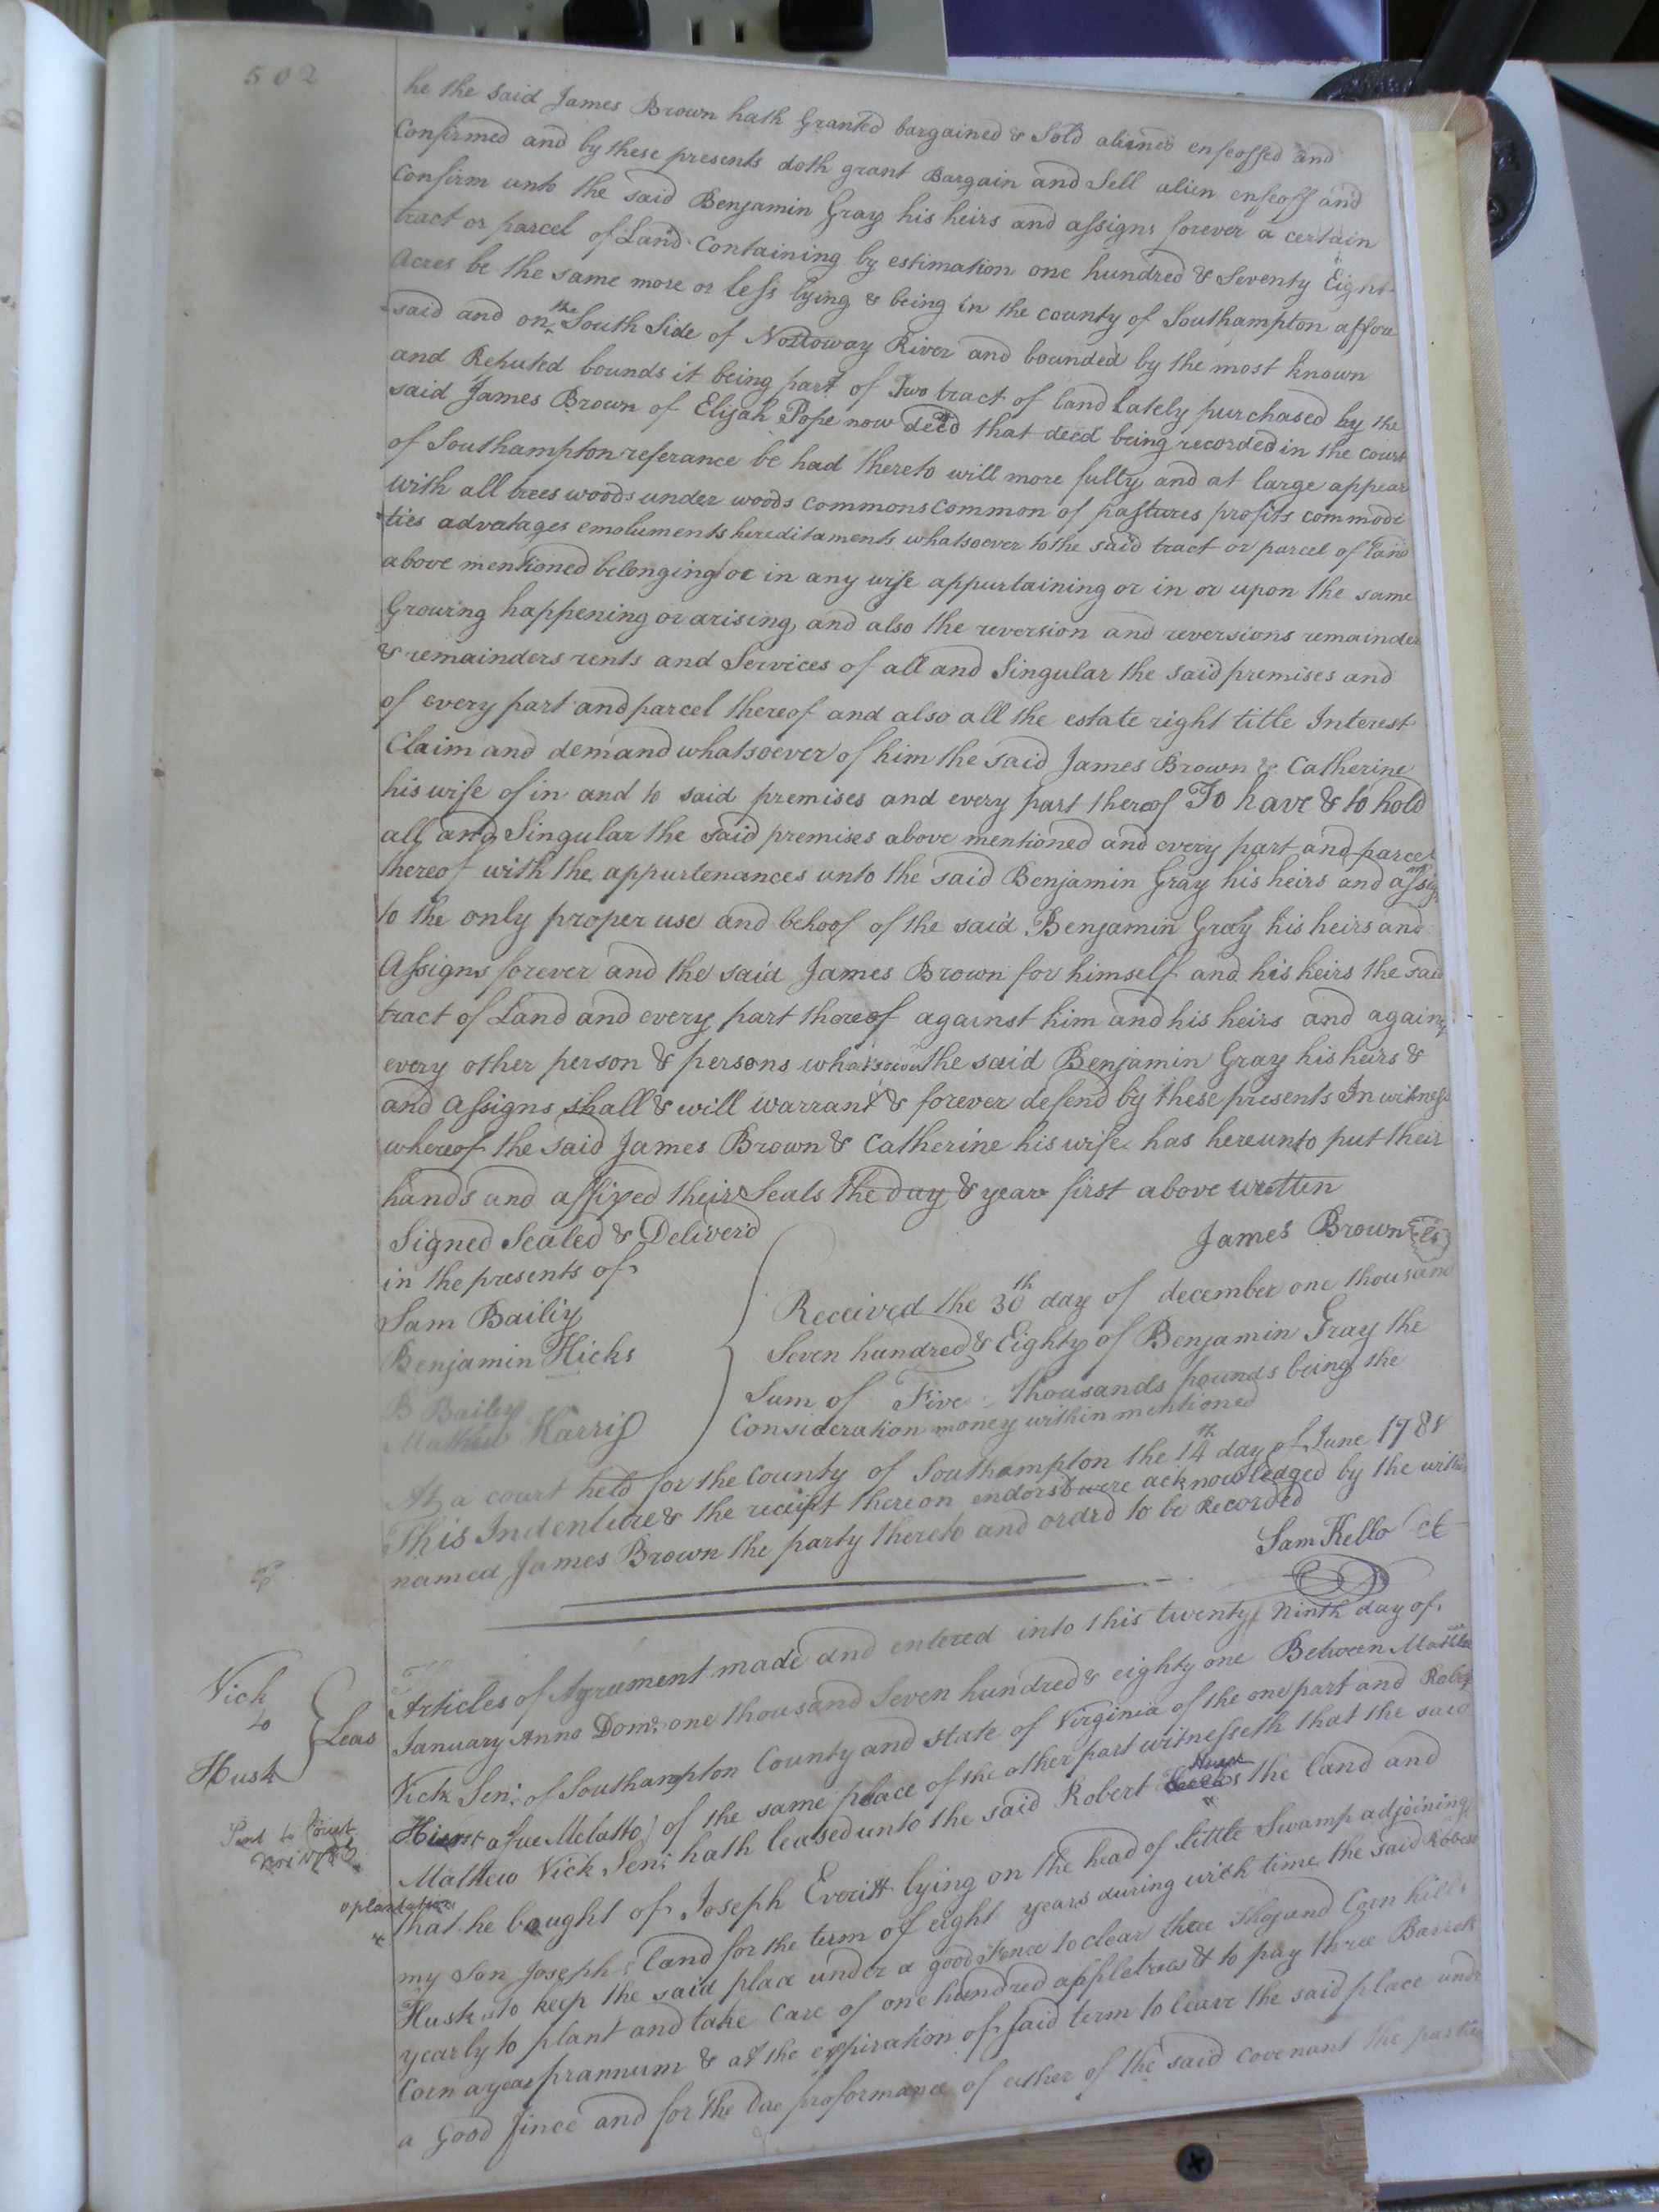 502
he the said James Brown hath Granted bargained & Sold aliened enfeoffed and
Confirmed and by these presents doth grant Bargain and Sell alien enfeoff and
Confirm unto the said Benjamin Gray his heirs and assigns forever a certain
tract or parcel of Land Containing by estimation one hundred & Seventy Eight
Acres be the same more or less lying & being in the county of Southampton affore
said and on the South Side of Nottoway River and bounded by the most known
and Reputed bounds it being part of Two tract of land Lately purchased by the
said James Brown of Elijah Pope now decd that deed being recorded in the court
of Southampton referance be had thereto will more fully and at large appear
with all trees woods under woods commons common of pastures profits commodi
ties advatages emoluments hereditaments whatsoever to the said tract or parcel of land
above mentioned belonging or in any wise appurtaining or in or upon the same
Growing happening or arising, and also the reversion and reversions remainder
& remainders rents and Services of all and Singular the said premises and
of every part and parcel thereof and also all the estate right title Interest
Claim and demand whatsoever of him the said James Brown & Catherine
his wife of in and to said premises and every part thereof To have & to hold
all and Singular the said premises above mentioned and every part and parcel
thereof with the appurtenances unto the said Benjamin Gray his heirs and assigns
to the only proper use and behoof of the said Benjamin Gray his heirs and
Assigns forever and the said James Brown for himself and his heirs the said
tract of Land and every part thereof against him and his heirs and against
every other person & persons whatsoever the said Benjamin Gray his heirs &
and Assigns shall & will warrant & forever defend by these presents In witness
whereof the said James Brown & Catherine his wife has hereunto put their
hands and affixed their Seals the day & year first above written
Signed Sealed & Deliver'd
James Brown LS
in the presents of
Sam Bailiy
Benjamin Hicks
B Bailey
Mathew Harris
Received the 30th day of december one thousand
Seven hundred & Eighty of Benjamin Gray the
Sum of Five thousands pounds being the
Consideration money within mentioned
At a court held for the County of Southampton the 14th day of June 1781
This Indenture & the receipt thereon endorsd were acknowledged by the within
named James Brown the party thereto and ordrd to be Recorded
Sam Kello Ct
Vick
to
Husk
Leas
Articles of Agreement made and entered into this twenty Ninth day of
January Anno Dom: one thousand Seven hundred & eighty one Between Mathew
Vick Senr. of Southampton County and State of Virginia of the one part and Robert
a free Melatto) of the same place of the other part witnesseth that the said
Mathew Vick Senr. hath leased unto the said Robert Husk the land and
plantation
that he bought of Joseph Everitt lying on the head of little Swamp adjoining
my Son Joseph's Land for the term of eight years during wich time the said Robert
Husk to keep the said place under a good Fence to clear three thosand Corn hills
yearly to plant and take care of one hundred appletrees & to pay three Barrels
Corn a year prannum & at the expiration of said term to leave the said place under
a Good fince and for the Due proformance of either of the said covenant the parties